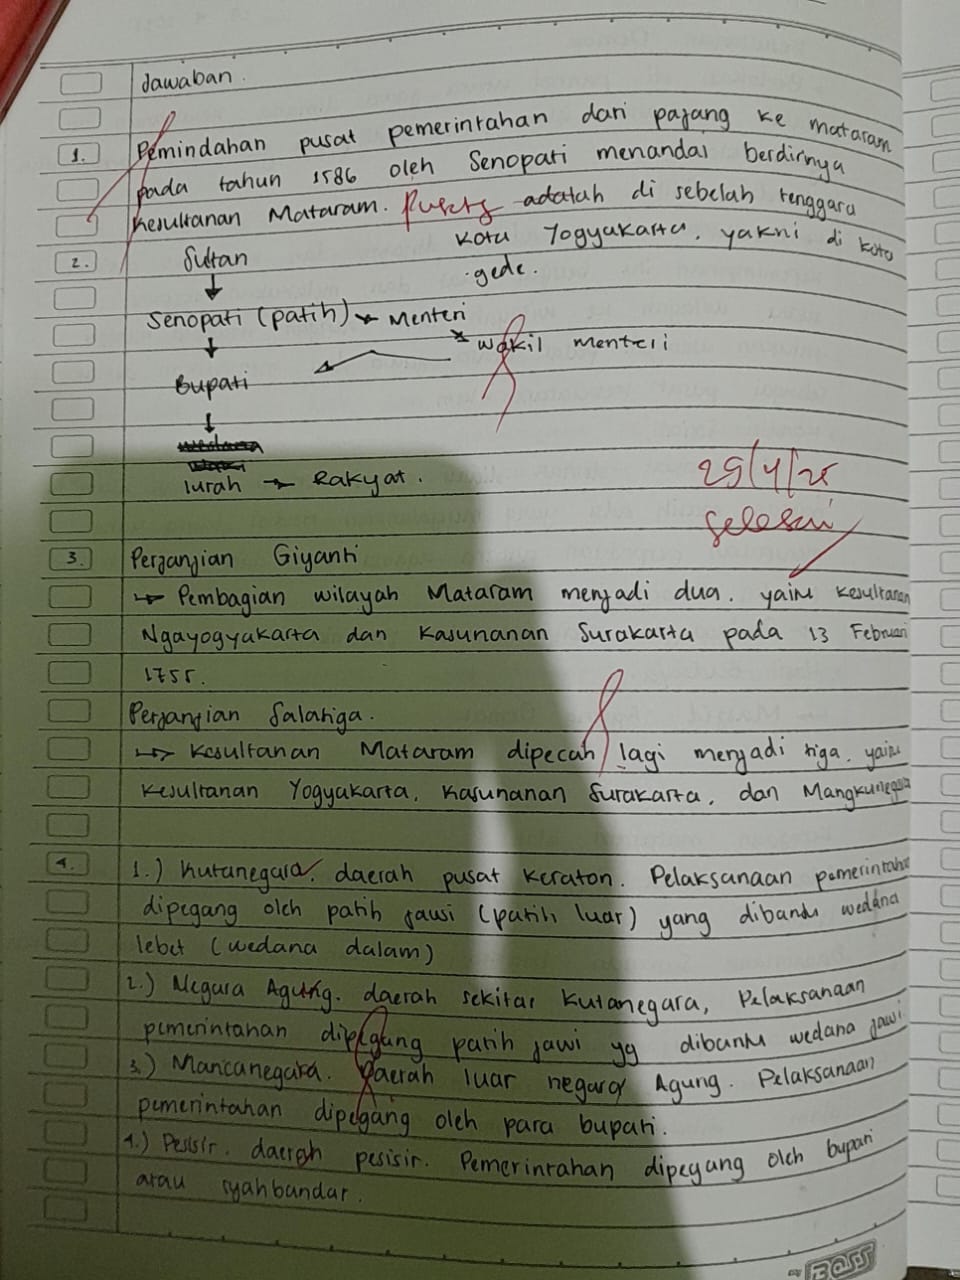 Jawaban.
1. Pemindahan pusat pemerintahan dari pajang ke mataram
pada tahun 1586 oleh Senopati menandai berdirinya
kesultanan Mataram. Pusatq adalah di sebelah tenggara
kota Yogyakarta, yakni di koto
gede.
2. Sultan
↓
Senopati (patih) → Menteri
→ wakil menteri
↓
Bupati
↓
lurah → Rakyat.
29/4/25
Selesai
3. Perjanjian Giyanti
↳ Pembagian wilayah Mataram menjadi dua. yaitu kesultanan
Ngayogyakarta dan Kasunanan Surakarta pada 13 Februari
1755.
Perjanjian Salatiga.
↳ Kesultanan Mataram dipecah lagi menjadi tiga. yaitu
Kesultanan Yogyakarta, Kasunanan Surakarta, dan Mangkunegara
4. 1.) Kutanegara, daerah pusat keraton. Pelaksanaan pemerintahan
dipegang oleh patih jawi (patih luar) yang dibantu wedana
lebet (wedana dalam)
2.) Negara Agung. daerah sekitar kutanegara, Pelaksanaan
pemerintahan dipegang patih jawi yg dibantu wedana jawi
3.) Mancanegara. Daerah luar negara Agung. Pelaksanaan
pemerintahan dipegang oleh para bupati.
4.) Pesisir. daerah pesisir. Pemerintahan dipegang oleh bupati
atau syahbandar.
Boss